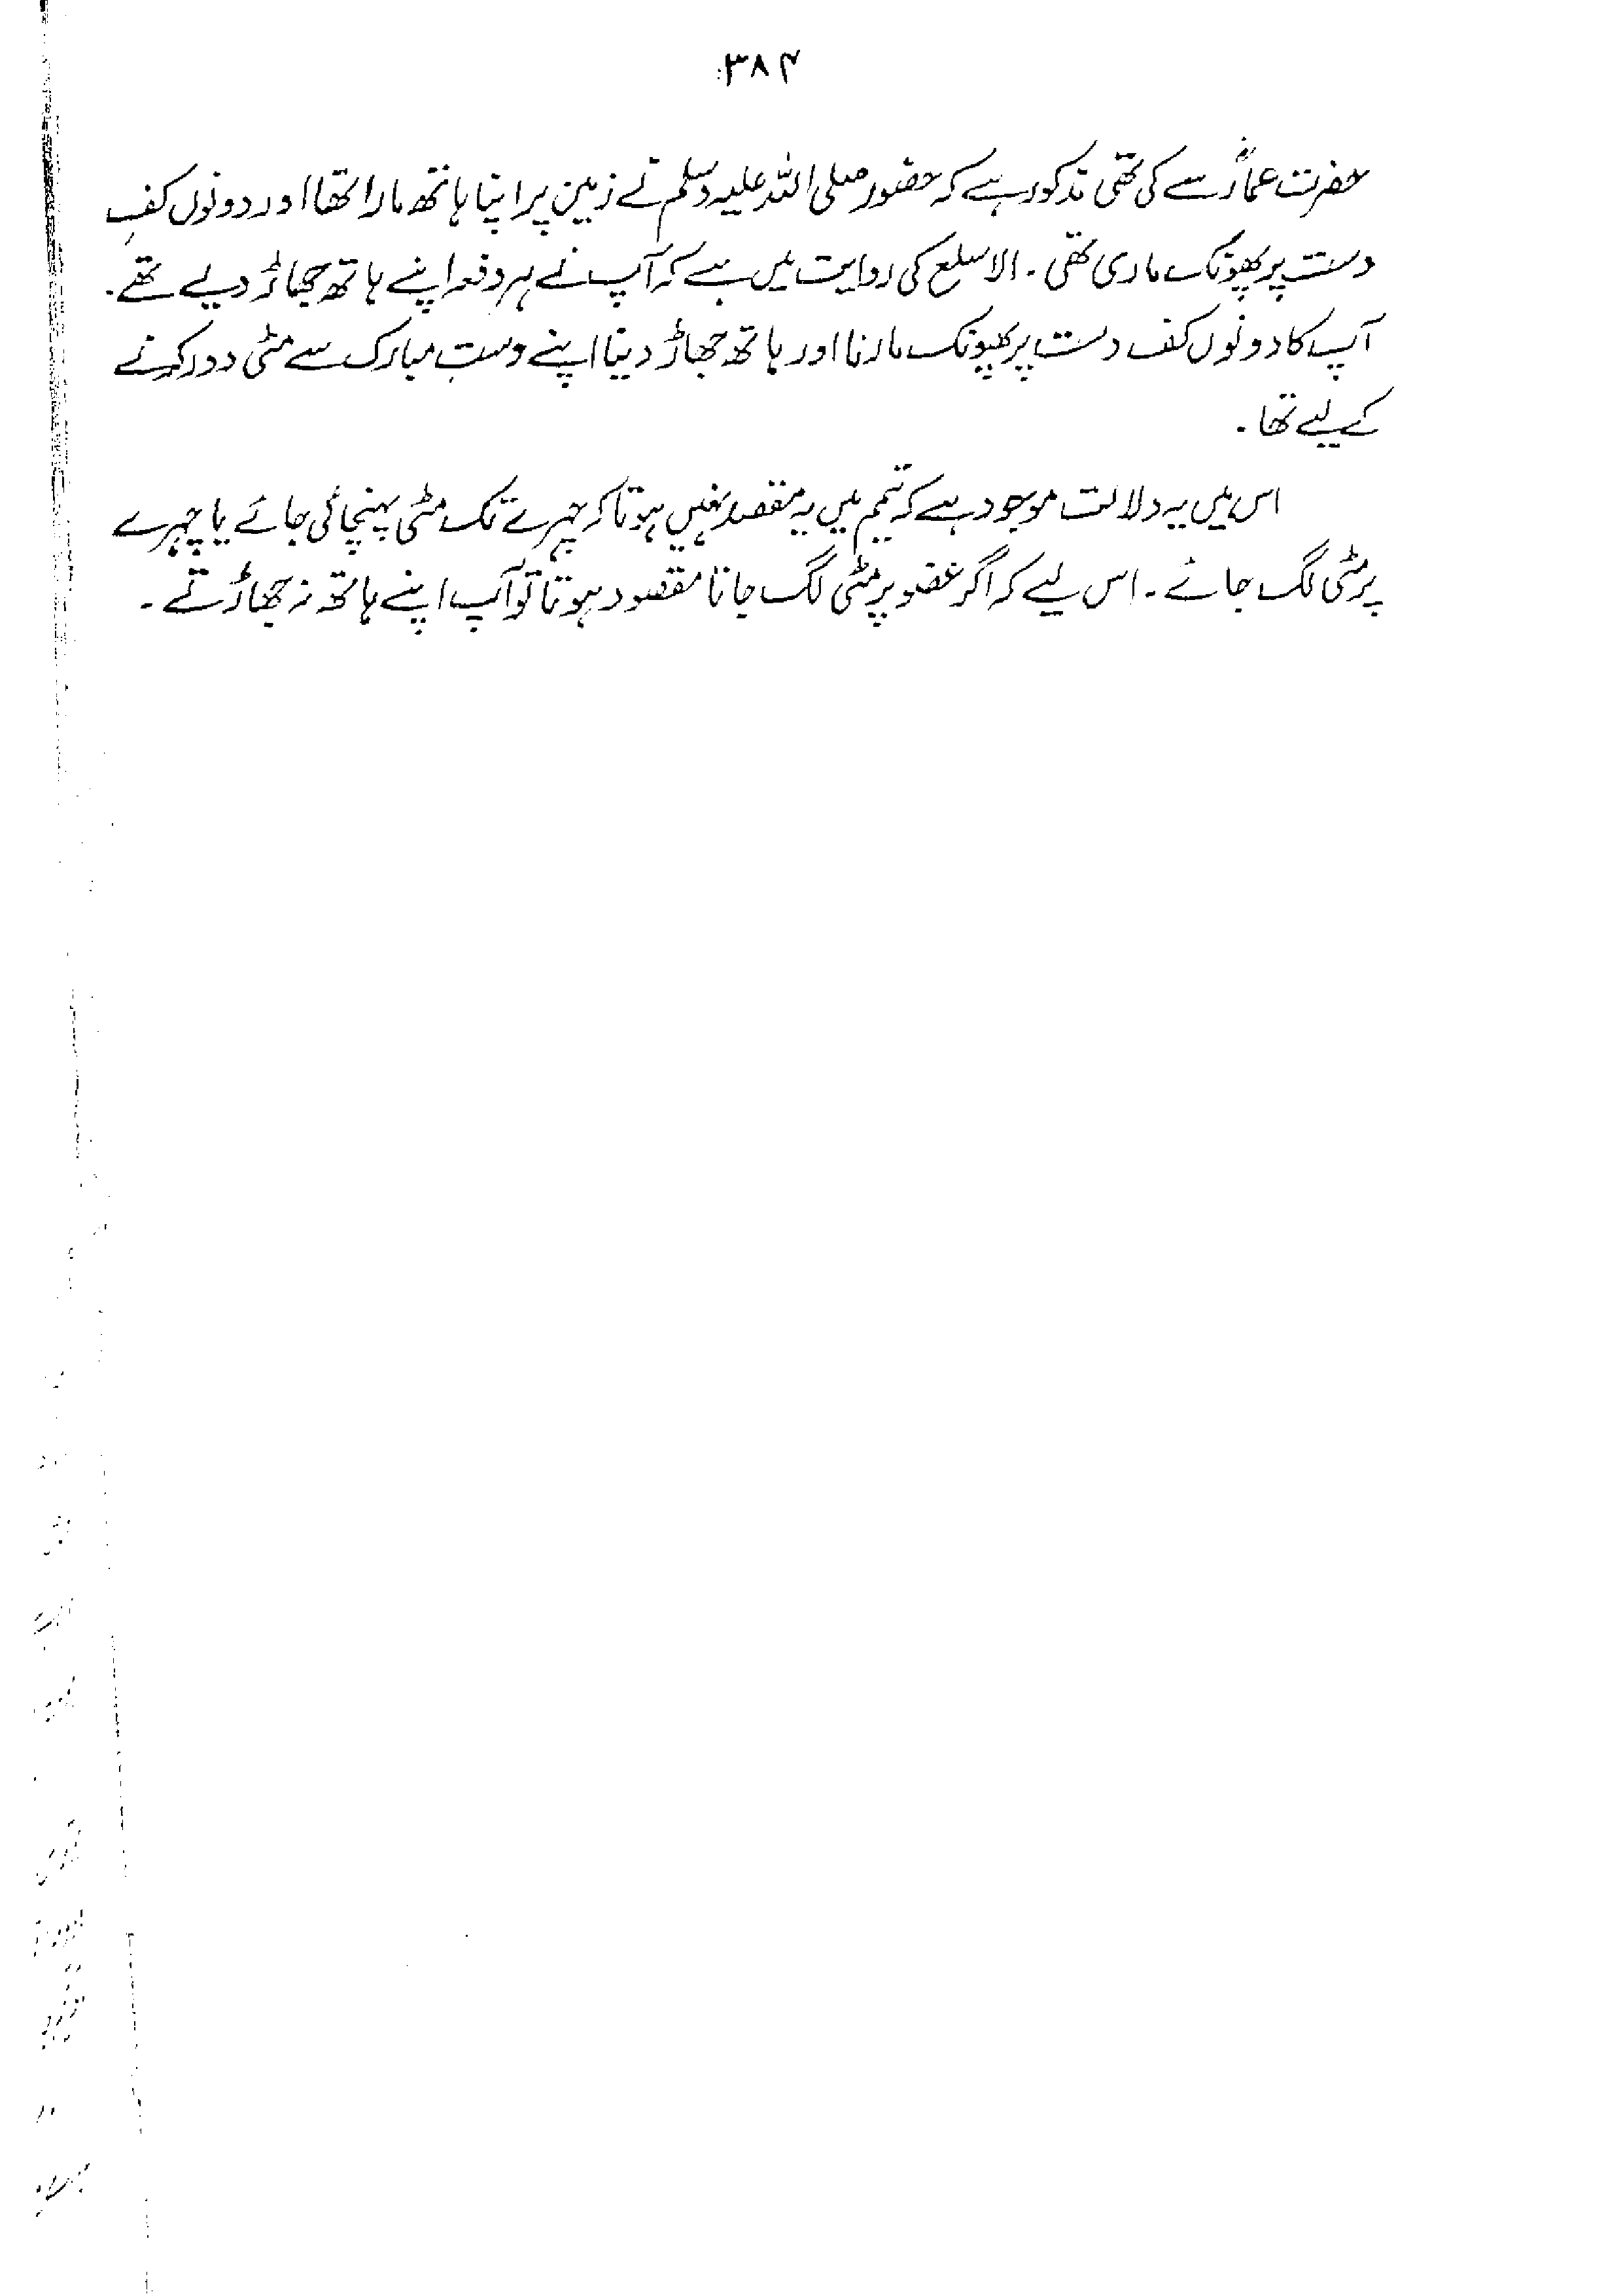 ۳۸۴
حضرت عمارؓ سے کی تھی مذکور ہے کہ حضور صلی اللہ علیہ وسلم نے زمین پر اپنا ہاتھ مارا تھا اور دونوں کفِ
دست پر پھونک ماری تھی ۔ الاسلع کی روایت میں ہے کہ آپ نے ہر دفعہ اپنے ہاتھ جھاڑ دیے تھے ۔
آپ کا دونوں کف دست پر پھونک مارنا اور ہاتھ جھاڑ دینا اپنے دستِ مبارک سے مٹی دور کرنے
کے لیے تھا ۔
اس میں یہ دلالت موجود ہے کہ تیمم میں یہ مقصد نہیں ہوتا کہ چہرے تک مٹی پہنچائی جائے یا چہرے
پر مٹی لگ جائے ۔ اس لیے کہ اگر عضو پر مٹی لگ جانا مقصود ہوتا تو آپ اپنے ہاتھ نہ جھاڑتے ۔